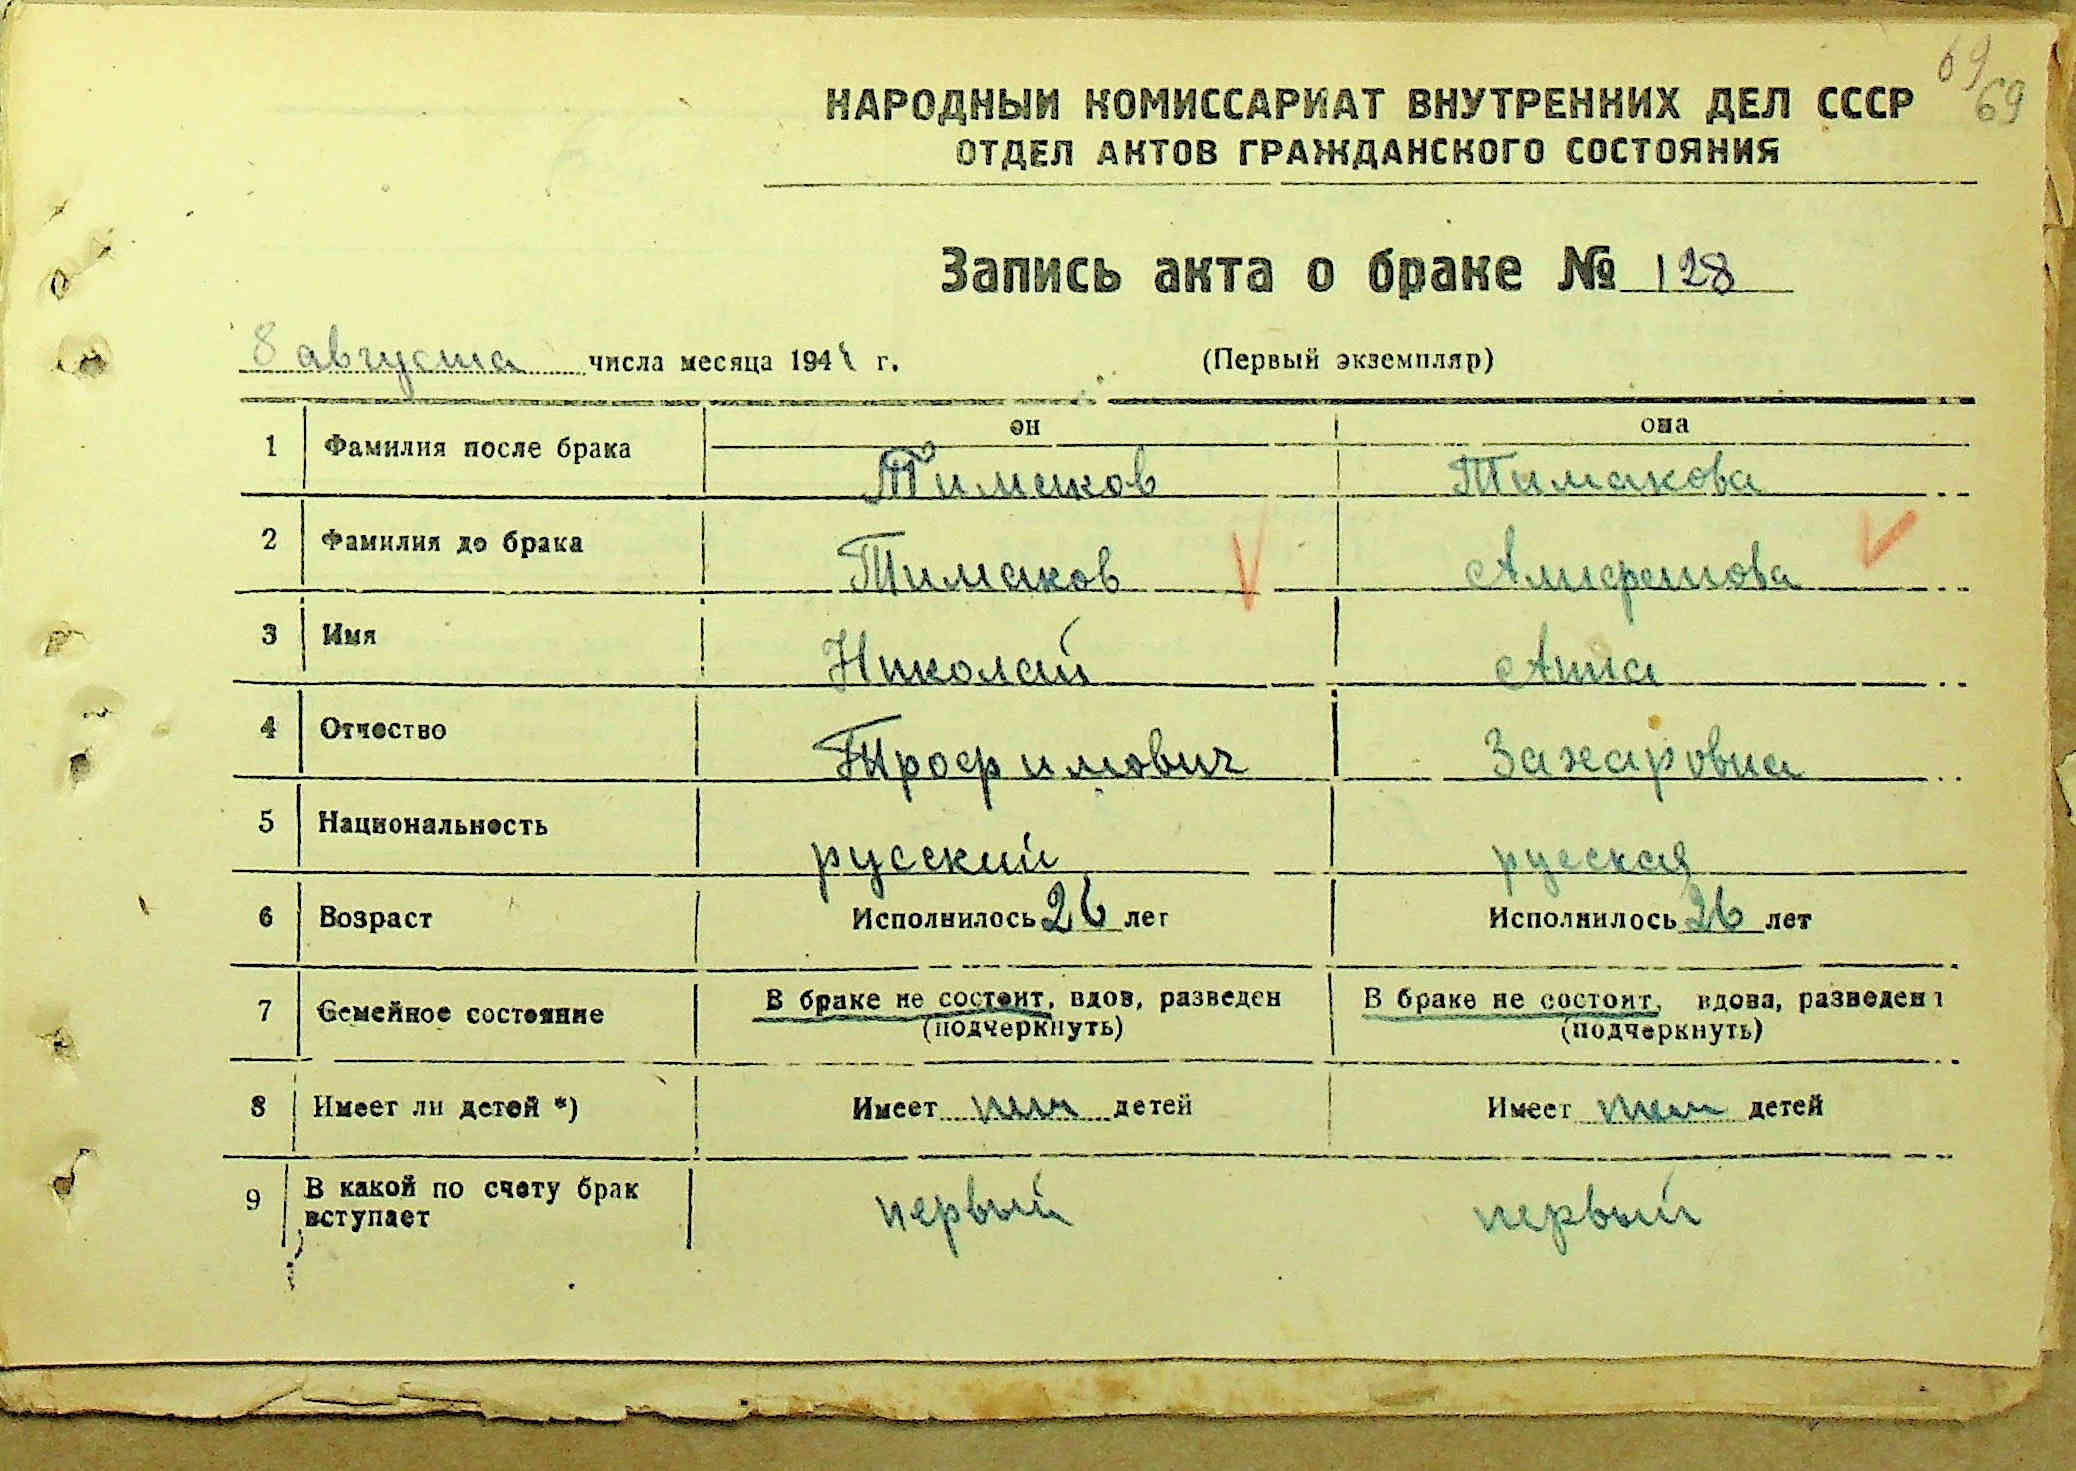 69
69
НАРОДНЫЙ КОМИССАРИАТ ВНУТРЕННИХ ДЕЛ СССР
ОТДЕЛ АКТОВ ГРАЖДАНСКОГО СОСТОЯНИЯ
Запись акта о браке № 128
8 августа числа месяца 1941 г. (Первый экземпляр)
он она
1 Фамилия после брака Тимаков Тимакова
2 Фамилия до брака Тимаков
3 Имя Николай Анна
4 Отчество Трофимович Захаровна
5 Национальность русский русская
6 Возраст Исполнилось 26 лет Исполнилось 26 лет
7 Семейное состояние В браке не состоит, вдов, разведен В браке не состоит, вдова, разведена
(подчеркнуть) (подчеркнуть)
8 Имеет ли детей *) Имеет нет детей Имеет нет детей
9 В какой по счету брак вступает первый первый